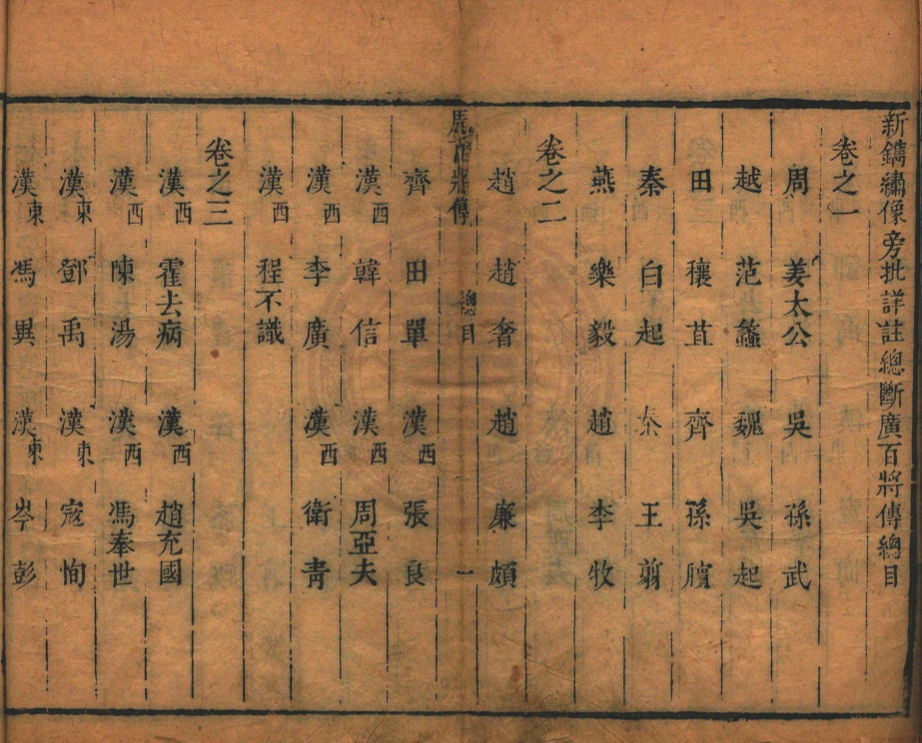 新鐫繡像旁批詳註總斷廣百將傳總目
卷之一
周 姜太公 吳 孫武
越 范蠡 魏 吳起
田 穰苴 齊 孫臏
秦 白起 秦 王翦
燕 樂毅 趙 李牧
卷之二
趙 趙奢 趙 廉頗
廣百將傳 總目 一
齊 田單 漢西 張良
漢西 韓信 漢西 周亞夫
漢西 李廣 漢西 衛青
漢西 程不識
卷之三
漢西 霍去病 漢西 趙充國
漢西 陳湯 漢西 馮奉世
漢東 鄧禹 漢東 寇恂
漢東 馮異 漢東 岑彭